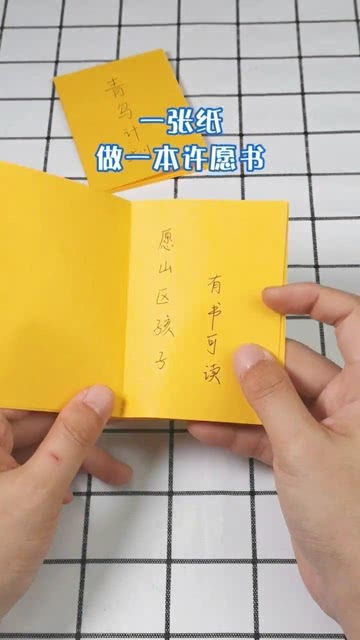 青鸟计划
一张纸
做一本许愿书
愿山区孩子
有书可读